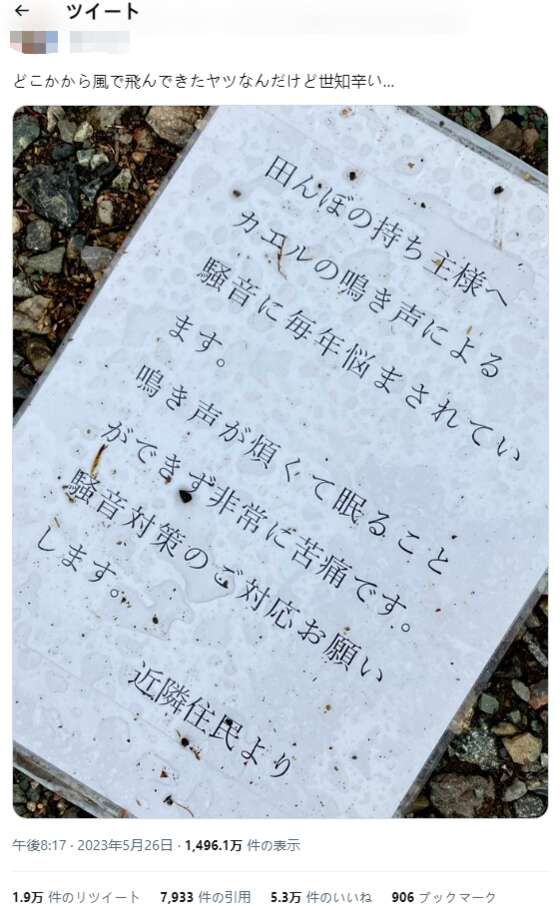 ツイート
どこかから風で飛んできたヤツなんだけど世知辛い...
田んぼの持ち主様へ
カエルの鳴き声による
騒音に毎年悩まされてい
ます。
鳴き声が煩くて眠ること
ができず非常に苦痛です。
騒音対策のご対応お願い
します。
近隣住民より
午後8:17 · 2023年5月26日 · 1,496.1万 件の表示
1.9万 件のリツイート 7,933 件の引用 5.3万 件のいいね 906 ブックマーク